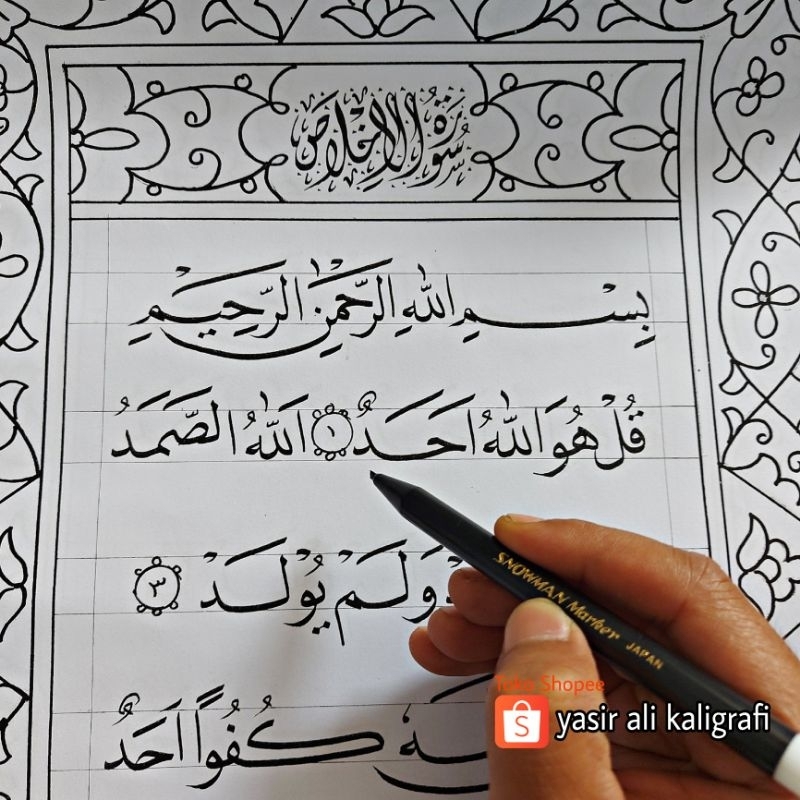 سُورَةُ الْإِخْلَاصِ
بِسْمِ اللّٰهِ الرَّحْمٰنِ الرَّحِيْمِ
قُلْ هُوَ اللّٰهُ اَحَدٌ ١ اَللّٰهُ الصَّمَدُ
وَلَمْ يُوْلَدْ ٣
كُفُوًا اَحَدٌ
SNOWMAN Marker JAPAN
Toko Shopee
yasir ali kaligrafi